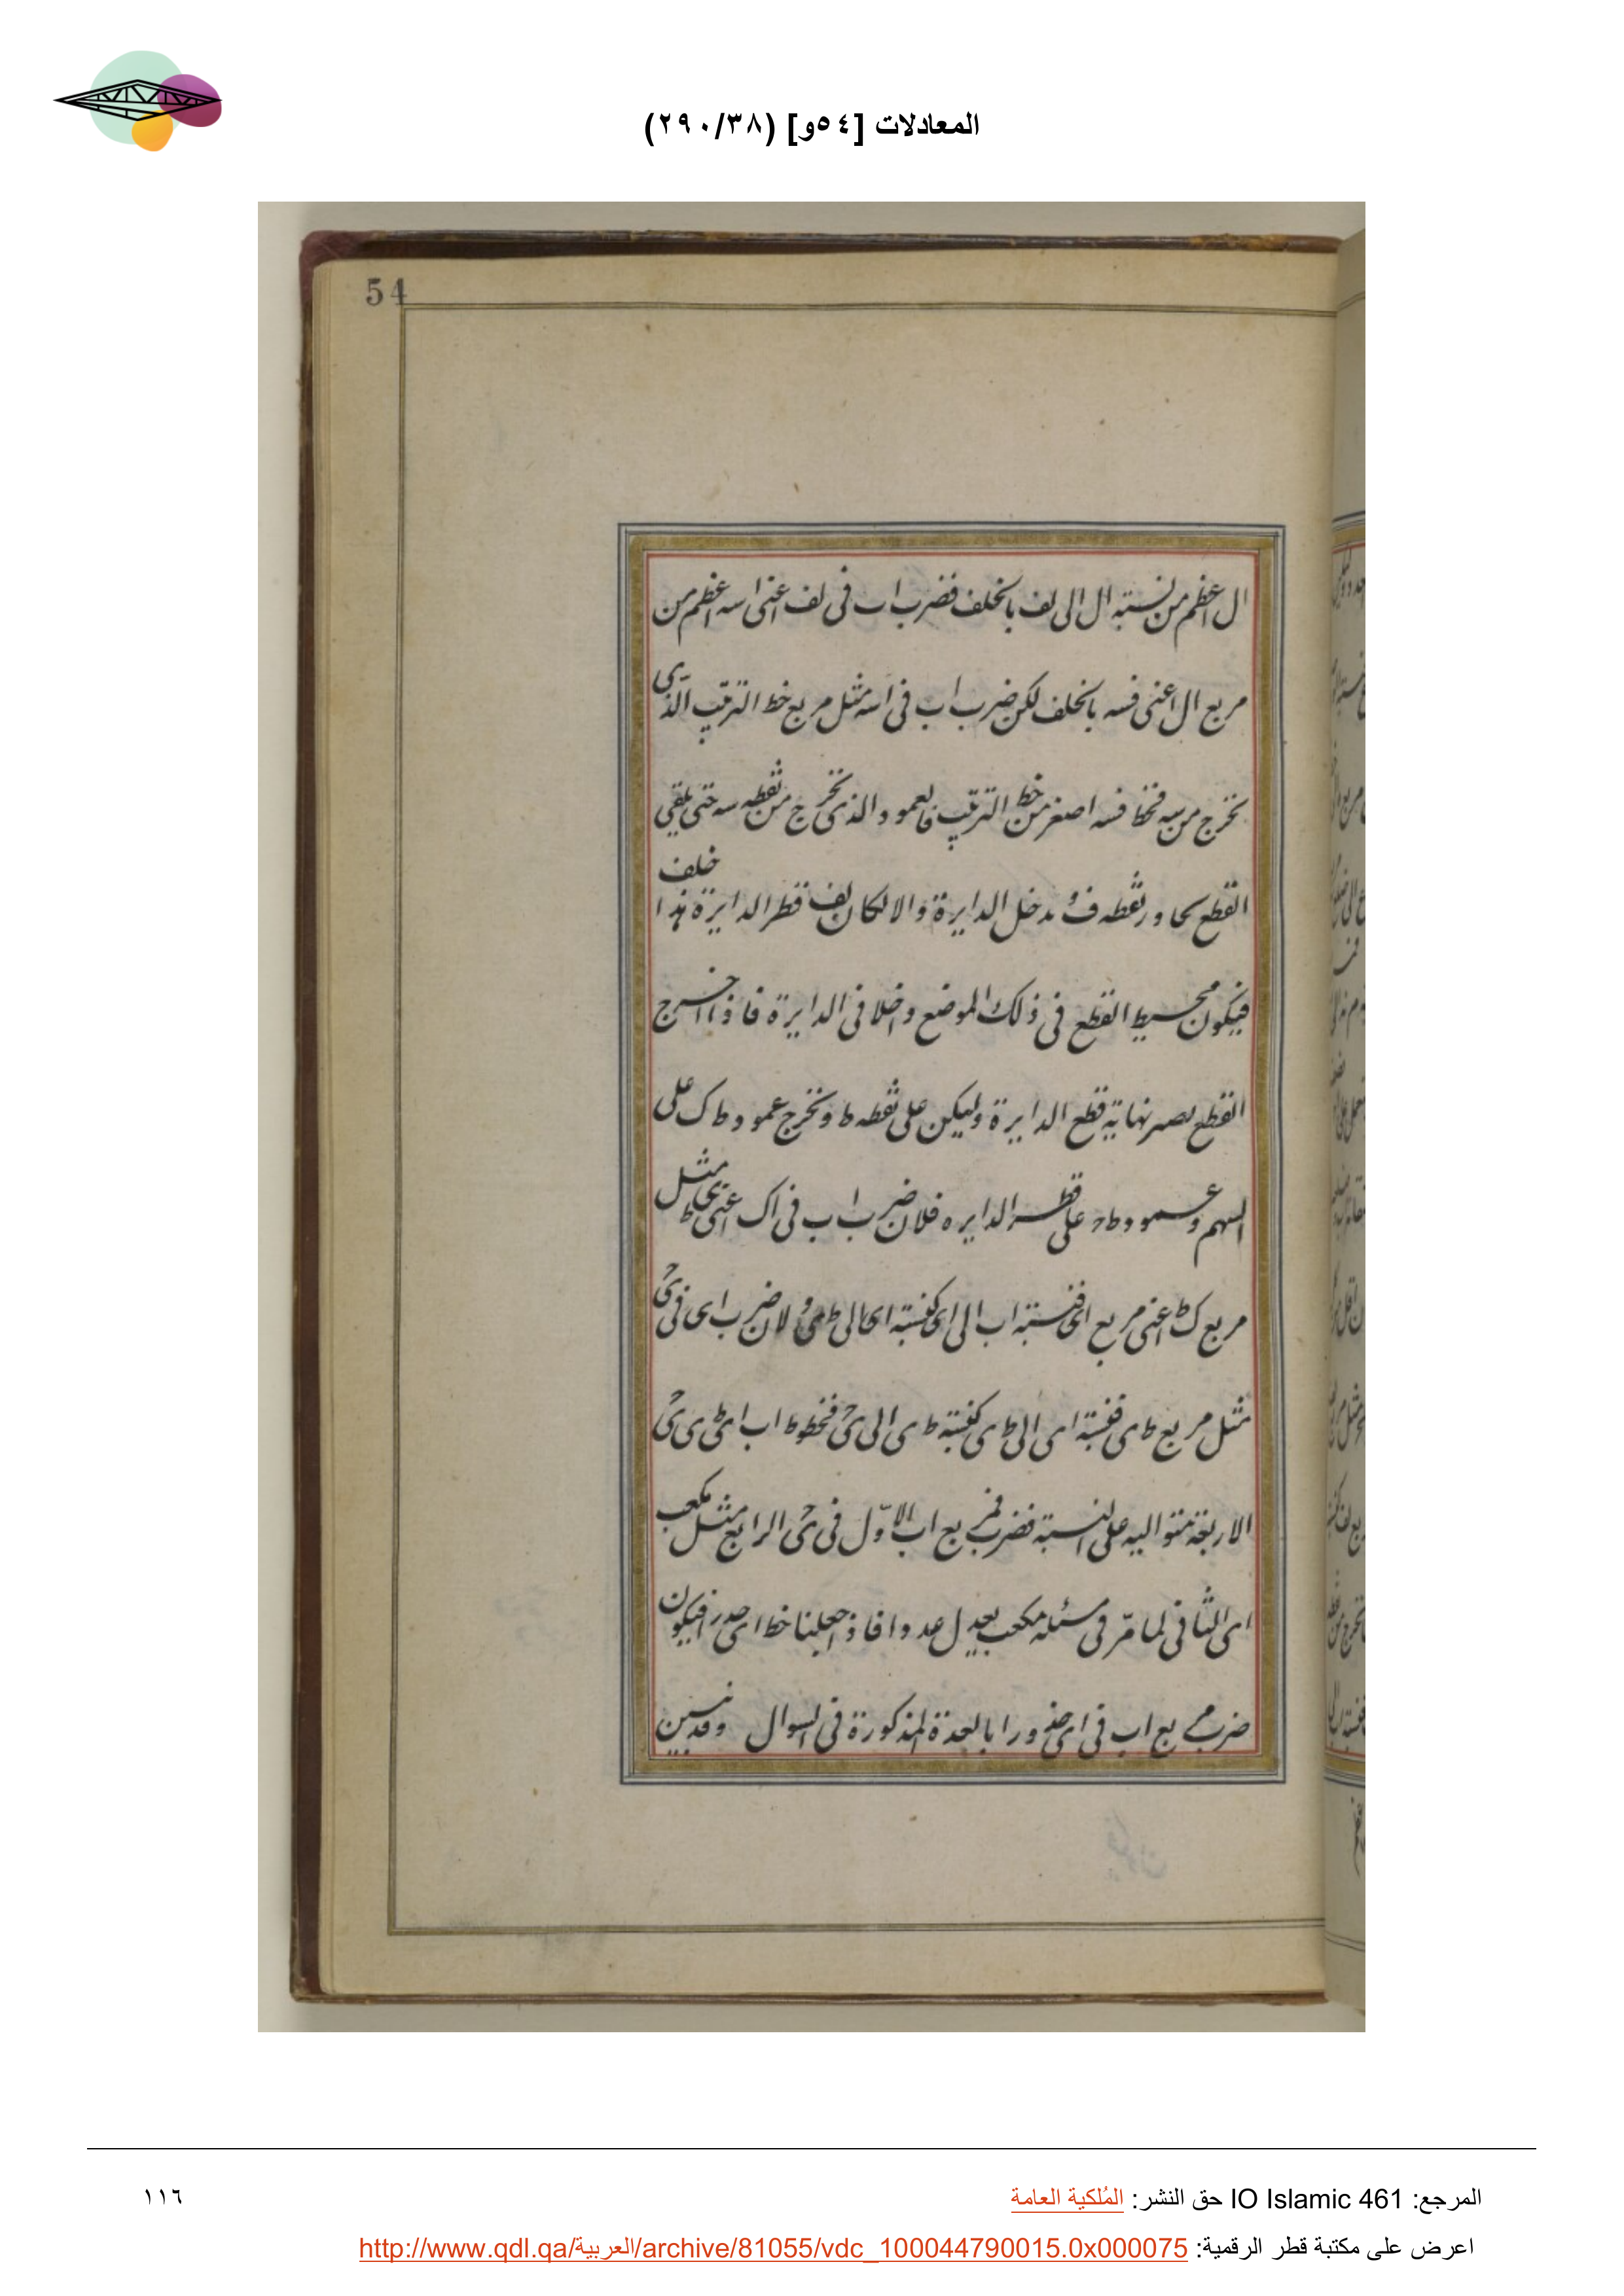 المعادلات [٥٤و] (٢٩٠/٣٨)
54
ال اعظم من نسبته ال الى لف بالخلف فضرب اب فى لف اعنى اسه اعظم من
مربع ال اعنى فسه بالخلف لكن ضرب اب فى اسه مثل مربع خط الترتيب الذى
نخرج من سه فخط فسه اصغر من خط الترتيب فالعمود الذى نخرج من نقطه سه حتى يلقى
القطع يجاور نقطه ف يدخل الدايرة والا لكان لف قطر الدايرة هذا خلف
فيكون محيط القطع فى ذلك الموضع داخلا فى الدايرة فاذا اخرج
القطع بصر نهاية قطع الدايرة وليكن على نقطه ط ونخرج عمود ط ك على
السهم وعمود ط على قطر الدايره فلان ضرب اب فى اك اعنى ى ط مثل
مربع ك ط اعنى مربع اى فنسبته اب الى اى كنسبته اى الى ط ى ولان ضرب اى فى ى ح
مثل مربع ط ى فنسبة اى الى ط ى كنسبة ط ى الى ى ح فخطوط اب اى ط ى ى ح
الاربعة متواليه على النسبته فضرب مربع اب الاول فى ى ح الرابع مثل مكعب
اى الثانى لما مر فى مسئله مكعب يعدل عدد افاذ اجعلنا خط اى جدرا فيكون
ضرب مربع اب فى اى جذورا بالعدة المذكورة فى السوال وقد تبين
المرجع: IO Islamic 461 حق النشر: المُلكية العامة
١١٦
اعرض على مكتبة قطر الرقمية: http://www.qdl.qa/العربية/archive/81055/vdc_100044790015.0x000075